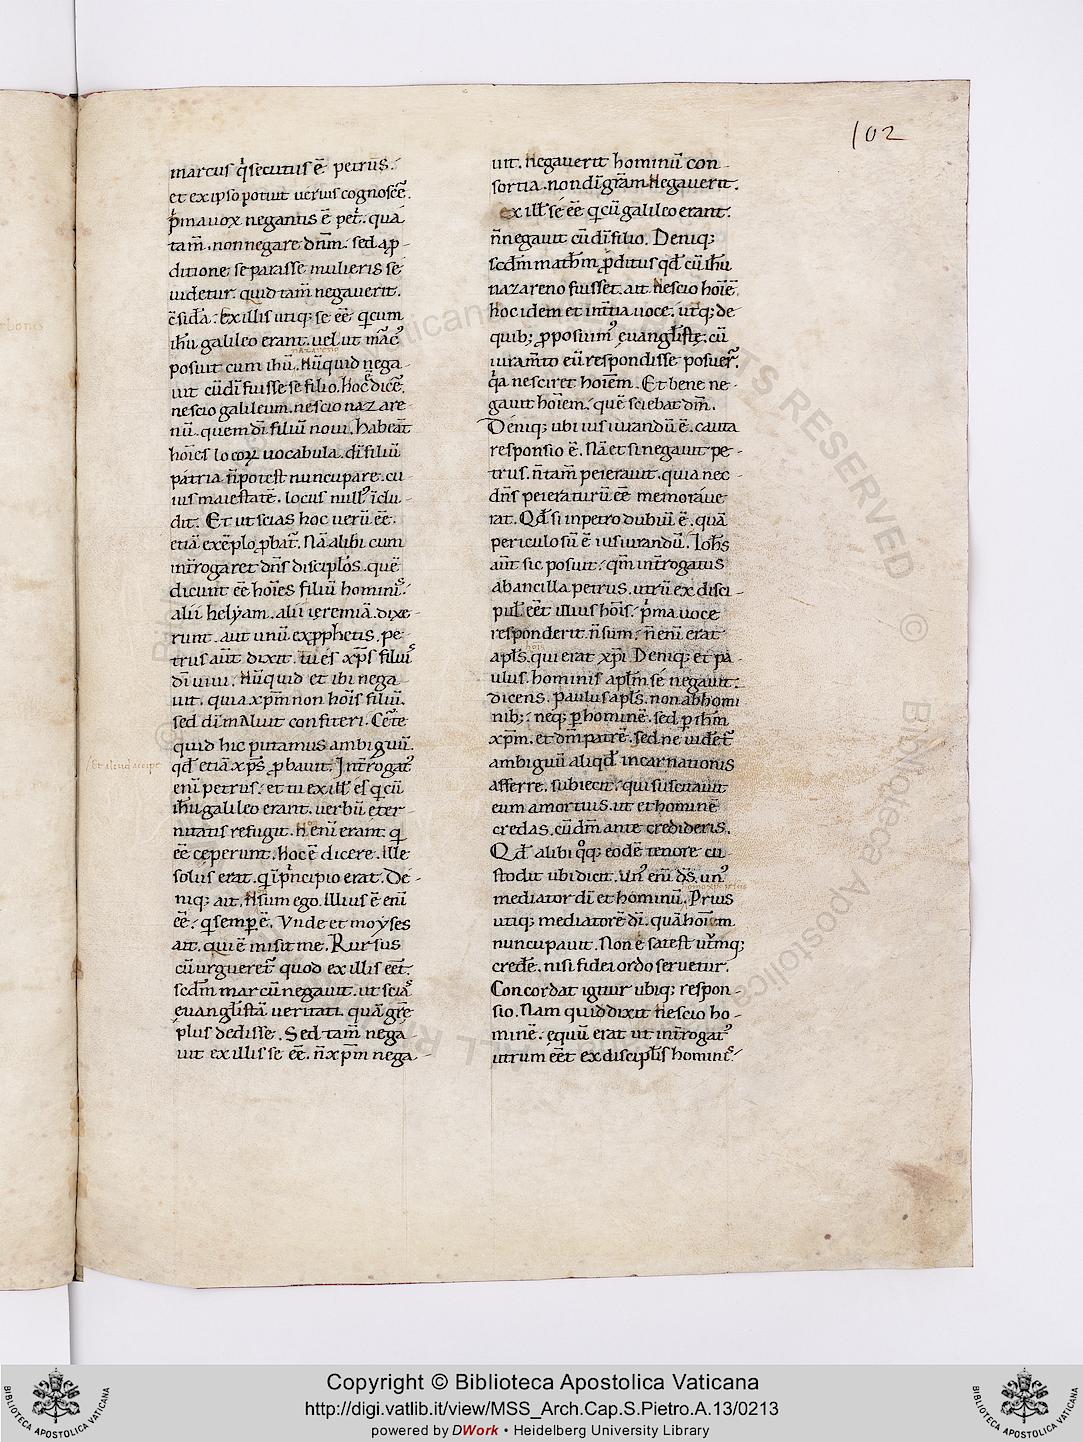 102
marcus q secutus ē petrus.
et ex ipso potuit uerius cognoscē.
p̄ma uox negantis ē pet̄. quā
tam̄. non negare dn̄m. sed a p̄
ditione se parasse mulieris sē
uidetur. quid tam̄ negauerit.
Ex illis utiq; se eē qi cum
ih̄u galileo erant. uel ut
posuit cum ih̄u. Nūquid nega
nazareno
uit cū dī fuisse se filio. hoc ē dicē.
nescio galileum. nescio nazare
nū. quem dī filiū noui. Habeāt
hoīes locoꝝ uocabula. dī filiū
patria n̄ potest nuncupare. cu
ius maiestatē. locus null' īclu
dit. Et ut scias hoc uerū eē.
etiā exēplo pbat̄. Nā alibi cum
int̄rogaret dn̄s discip̄los. quē
dicunt eē hoīes filiū homini'.
alii helyam. alii ieremiā. dixe
runt. aut unū ex pphetis. pe
trus aūt dixit. tu es xp̄s filiu'
dī uiui. Nūquid et ibi nega
uit. quia xp̄m non hoīs filiū.
sed dī maluit confiteri. Cērte
quid hic putamus ambiguū.
qd̄ etiā xp̄s pbauit. Int̄rogat'
et aliud accipe
enī petrus. et tu ex ill' es qi cū
ih̄u galileo erant. uerbū eter
nitatis refugit. n̄ enī erant qi
eē ceperunt. hoc ē dicere. ille
solus erat. qi ī pncipio erat. De
niq; ait. n̄ sum ego. illius ē enī
eē. qi semp ē. Vnde et moyses
ait. qui ē misit me. Rursus
cū urgueret̄ quod ex illis eēt.
scdm̄ marcū negauit. ut scia'
euangl̄istā ueritati. quā grē
plus dedisse. Sed tam̄ nega
uit ex illis se eē. n̄ xp̄m nega
uit. negauerit hominū con
sortia. non dī grām negauerit.
ex ill' sē eē qi cū galileo erant.
n̄ negauit cū dī filio. Deniq;
scdm̄ math̄m pditus qd̄ cū ih̄u
nazareno fuisset. ait nescio hoīē.
hoc idem et int̄tia uoce. ut̄q; de
quib; pposuim' euangl̄istę. cū
iuram̄to eū respondisse posuer̄.
qa nesciret hoīem. Et bene ne
gauit hoīem. quē sciebat dm̄.
Deniq; ubi iusiurandū ē. cauta
responsio ē. Nā et si negauit pe
trus. n̄ tam̄ peierauit. quia nec
dn̄s peieraturū eē memorāue
rat. Qd̄ si in petro dubiū ē. quā
periculosū ē iusiurandū. Ioh̄s
aūt sic posuit. qm̄ int̄rogatus
ab ancilla petrus. utrū ex disci
pul' eēt illius hoīs. p̄ma uoce
responderit. n̄ sum. n̄ enī erat
apl̄s. qui erat xp̄i. Deniq; et pa
ulus. hominis apl̄m sē negauit.
dicens. paulus apl̄s. non ab homi
nib; neq; p hominē. sed p ih̄m
xp̄m. et dm̄ patrē. sed ne uidēt̄
ambiguū aliqd̄ incarnationis
afferre. subiecit. qui suscitauit
eum a mortuis. ut et hominē
credas. cū dm̄ ante credideris.
Qd̄ alibi qoq; eodē tenore cu
stodit ubi dicit. un' enī ds̄. un'
mediator dī et hominū. Prius
utiq; mediatorē dī. quā hoīem
nuncupauit. Non ē sat est utrūq;
credē. nisi fidei ordo seruetur.
Concordat igitur ubiq; respon
sio. Nam quid dixit nescio ho
minē. equū erat ut int̄rogat'
utrum eēt ex discipl̄is homini'
Copyright © Biblioteca Apostolica Vaticana
http://digi.vatlib.it/view/MSS_Arch.Cap.S.Pietro.A.13/0213
powered by DWork • Heidelberg University Library